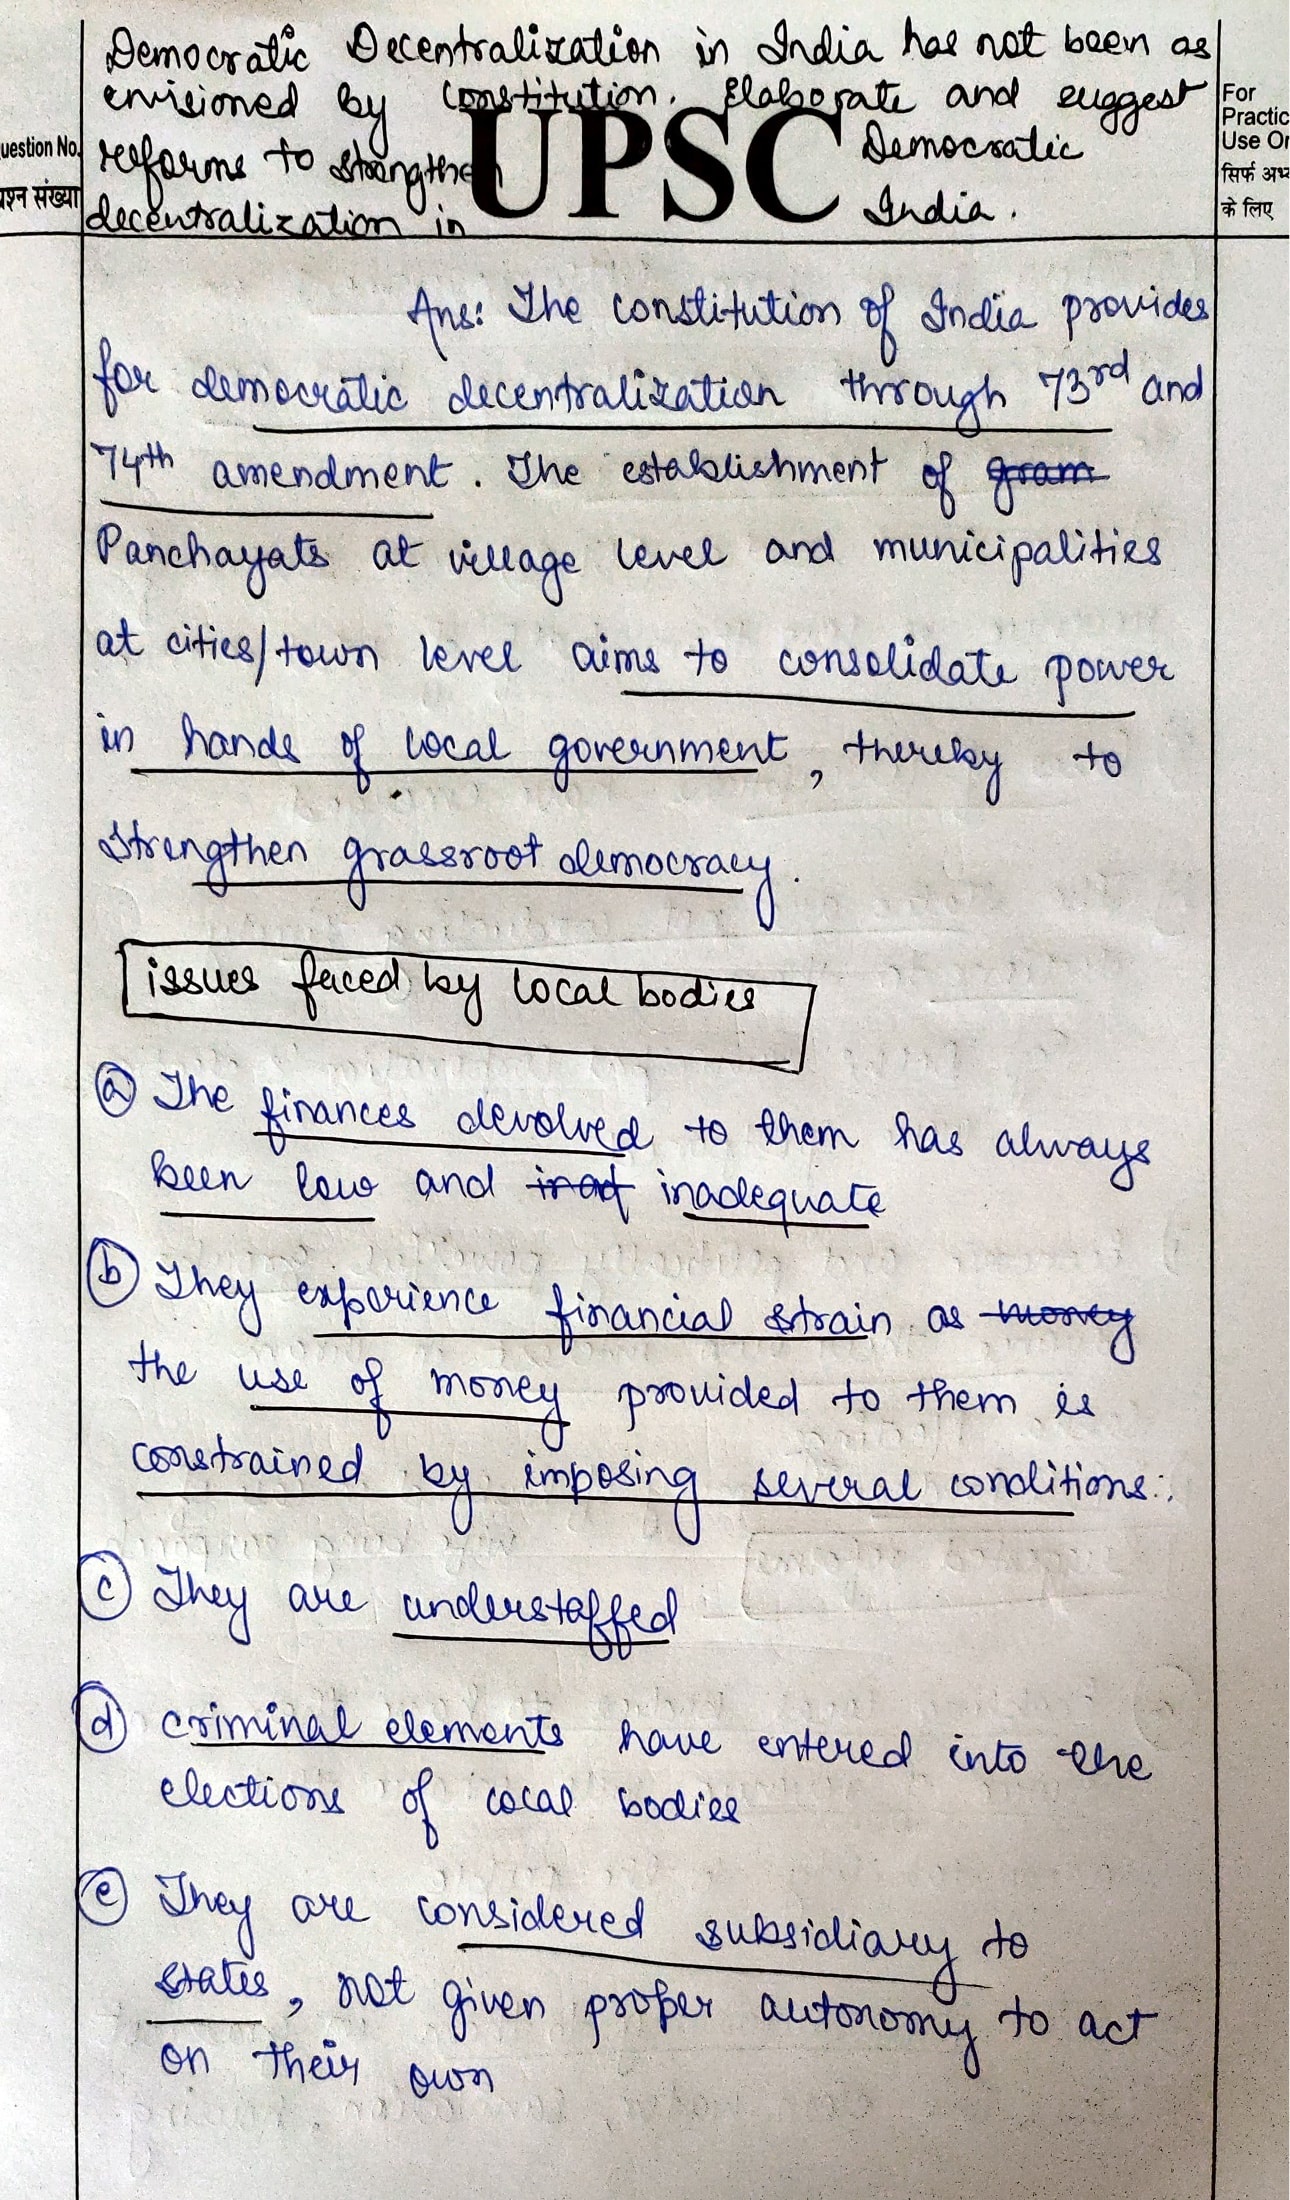 Democratic Decentralization in India has not been as
envisioned by Constitution. Elaborate and suggest
reforms to strengthen Democratic
decentralization in India.
UPSC
uestion No.
प्रश्न संख्या
For
Practic
Use Or
सिर्फ अभ्य
के लिए
Ans: The constitution of India provides
for democratic decentralization through 73rd and
74th amendment. The establishment of gram
Panchayats at village level and municipalities
at cities/town level aims to consolidate power
in hands of local government, thereby to
strengthen grassroot democracy.
issues faced by local bodies
(a) The finances devolved to them has always
been low and inad inadequate
(b) They experience financial strain as money
the use of money provided to them is
constrained by imposing several conditions.
(c) They are understaffed
(d) criminal elements have entered into the
elections of local bodies
(e) They are considered subsidiary to
states, not given proper autonomy to act
on their own